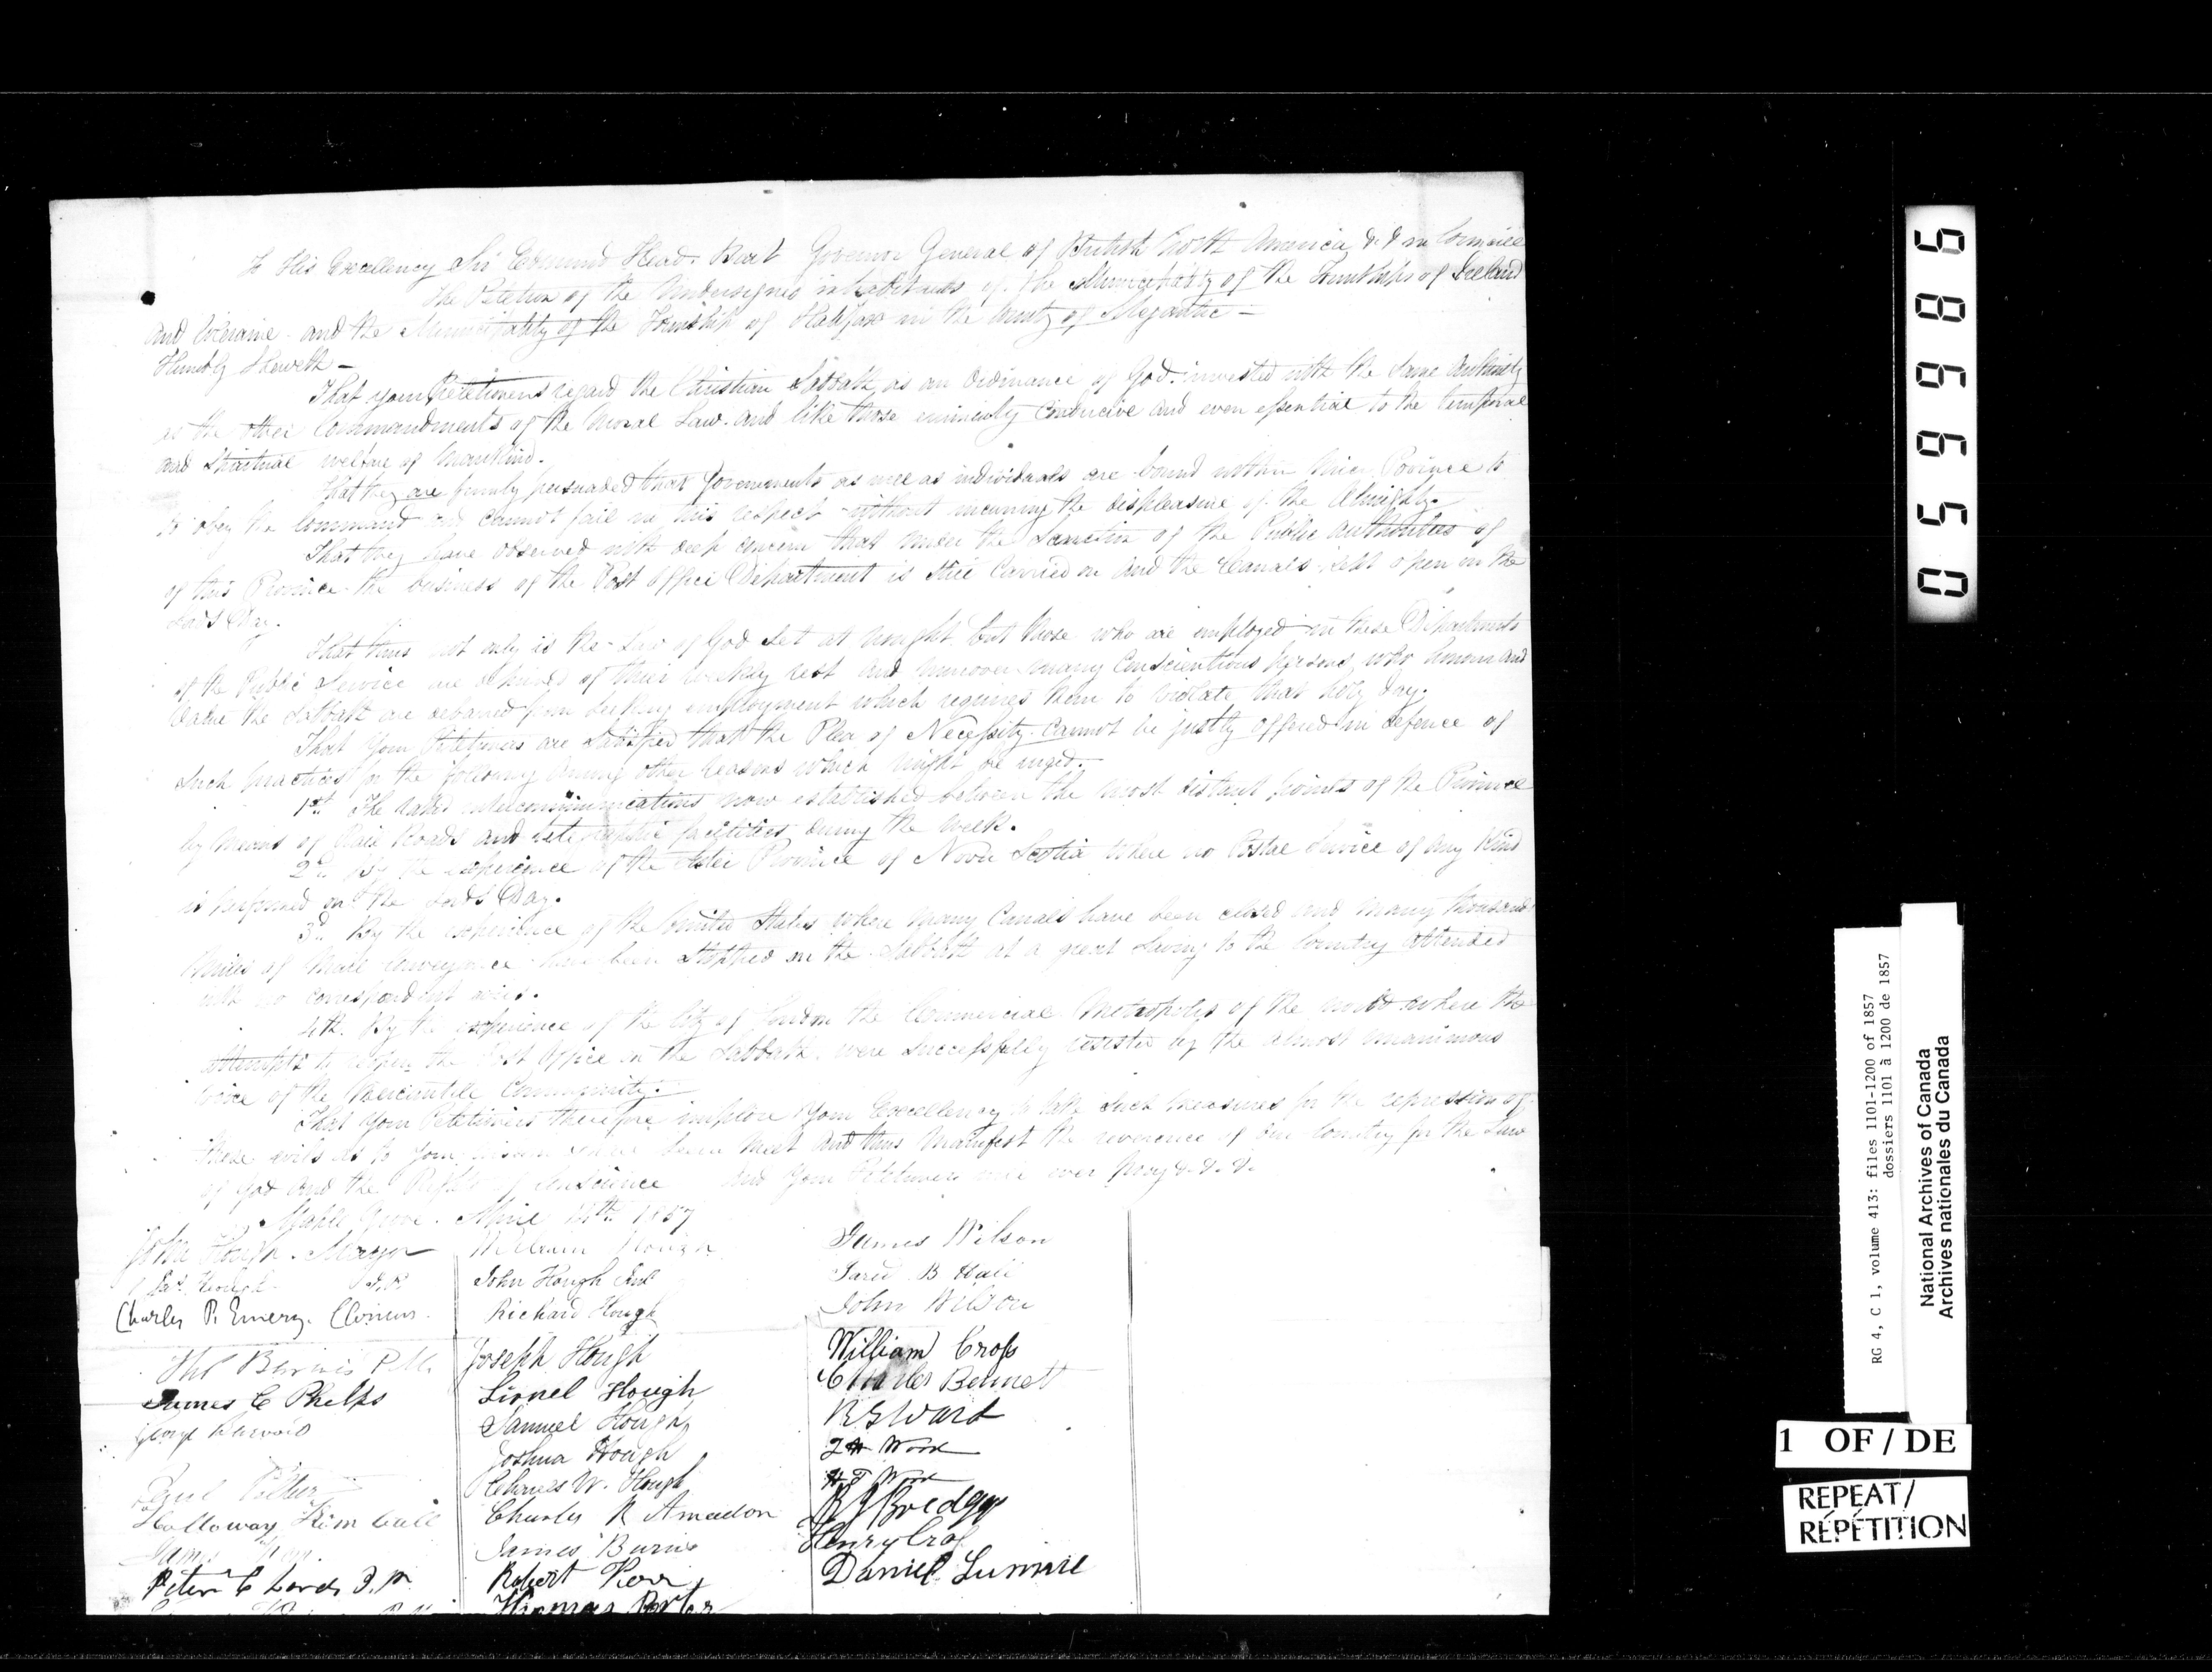 To His Excellency Sir Edmund Head. Bart Governor General of British North America &c &c in Council
The Petition of the Undersigned inhabitants of the Municipality of the Townships of Ireland
and Coleraine and the Municipality of the Township of Halifax in the County of Megantic —
Humbly Sheweth —
That your Petitioners regard the Christian Sabbath as an Ordinance of God. invested with the Same Authority
as the other Commandments of the Moral Law. and like those eminently Conducive and even essential to the temporal
and Spiritual welfare of Mankind.
That they are firmly persuaded that Governments as well as individuals are bound within their Province to
to obey the Command and cannot fail in this respect without incurring the displeasure of the Almighty.
That they have observed with deep concern that under the Sanction of the Public authorities of
of this Province the business of the Post Office Department is still Carried on and the Canals kept open on the
Lord's Day.
That thus not only is the Law of God Set at Nought but those who are employed in these Departments
of the Public Service are deprived of their weekly rest and moreover many Conscientious persons who honor and
Value the Sabbath are debarred from seeking employment which requires them to Violate that holy day.
That Your Petitioners are Satisfied that the Plea of Necessity cannot be justly offered in defence of
Such practices for the following Among other reasons which might be urged.
1st The rapid intercommunications now established between the most distant points of the Province
by Means of Rail Roads and telegraphic facilities during the Week.
2d By the experience of the Sister Province of Nova Scotia where no Postal Service of any Kind
is performed on the Lord's Day.
3d By the experience of the United States where Many Canals have been closed and many thousand
Miles of Mail conveyance have been Stopped on the Sabbath at a great Saving to the Country attended
with no correspondent evils.
4th. By the experience of the City of London the Commercial Metropolis of the world where the
attempts to open the Post Office on the Sabbath were successfully resisted by the almost unanimous
voice of the Mercantile Community.
That Your Petitioners therefore implore Your Excellency to take Such Measures for the repression of
these evils as to Your wisdom Seem Meet and thus Manifest the reverence of our Country for the Law
of God and the Rights of Conscience And Your Petitioners will ever Pray &. &. &.
Maple Grove. April 14th 1857
John Hough. Mayor
Charles P. Emery.
James C Phelps
Holloway Kimball
Peter C Lord J.P.
William Hough
John Hough
Richard Hough
Joseph Hough
Lionel Hough
Samuel Hough
Joshua Hough
Charles W. Hough
Charles R Amadon
James Burns
Robert Kerr
Thomas Porter
James Wilson
Jared B Hall
John Wilson
William Cross
Charles Bennett
R G Ward
Henry Cross
Daniel Lunnie
05 9 9 8 6 5
RG 4, C 1, volume 413: files 1101-1200 of 1857
dossiers 1101 à 1200 de 1857
National Archives of Canada
Archives nationales du Canada
1 OF / DE
REPEAT/
RÉPÉTITION